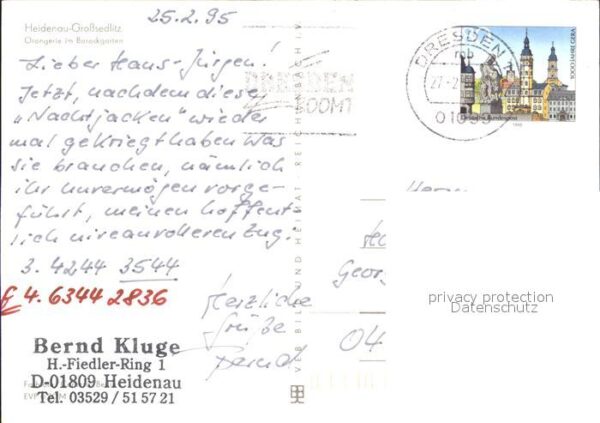 25.2.95
Heidenau-Großsedlitz
Orangerie im Barockgarten
Lieber Hans-Jürgen!
Jetzt, nachdem diese
„Nachtjacken" wieder
mal gekriegt haben was
sie brauchen, nämlich
ihr unvermögen vorge-
führt, meinen hoffent-
lich niveauvolleren Zug:
3. 4244 3544
4. 6344 2836
Herzliche
Grüße
Bernd
Bernd Kluge
H.-Fiedler-Ring 1
D-01809 Heidenau
Tel. 03529 / 51 57 21
VEB BILD UND HEIMAT REICHENBACH I.V.
DRESDEN
BOOMT
DRESDEN
mb
27.2
1000 JAHRE GERA
Deutsche Bundespost
1995
Georg
04
privacy protection
Datenschutz